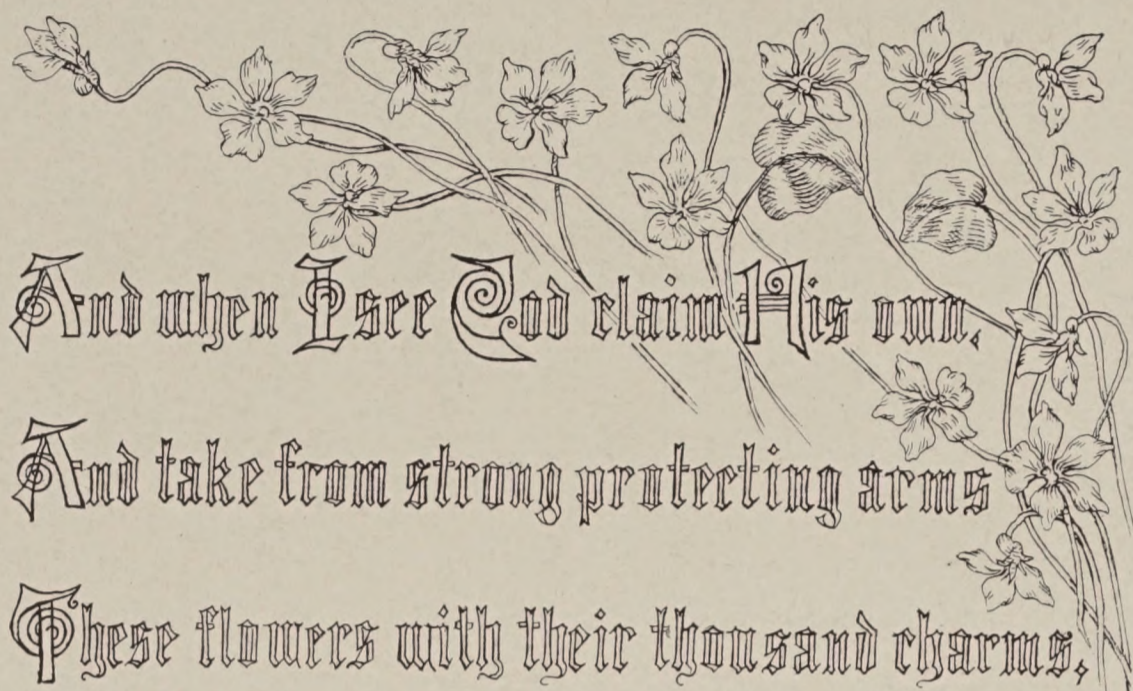 And when I see God claim His own,
And take from strong protecting arms
These flowers with their thousand charms,